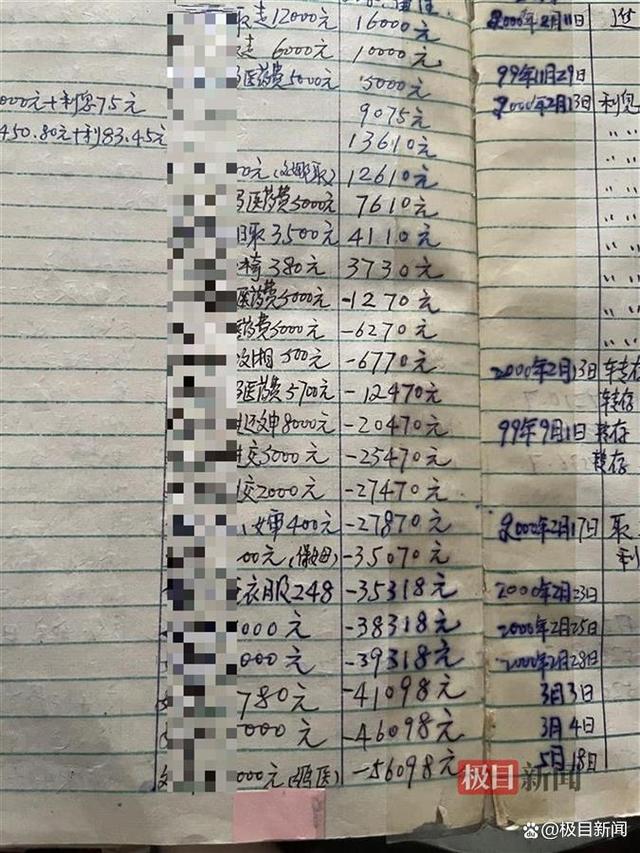 取走12000元 16000元 2000年2月11日
走6000元 10000元
医药费5000元 5000元 99年11月29日
000元+利息75元 9075元 2000年2月13日 利息
450.80元+利83.45元 13610元 〃 〃
0元 取) 12610元 〃 〃
医药费5000元 7610元 〃 〃
取3,500元 4110元 〃 〃
椅380元 3730元 〃 〃
医药费5000元 -1270元 〃 〃
药费5000元 -6270元 〃 〃
500元 -6770元 2000年2月13日 转存
医药费5700元 -12470元 转存
8000元 -20470元 99年9月1日 转存
交5000元 -25470元 转存
交2000元 -27470元
400元 -27870元 2000年2月17日 取
00元(保姆) -35070元 利
衣服248 -35318元 2000年2月23日
000元 -38318元 2000年2月25日
000元 -39318元 2000年2月28日
780元 -41098元 3月3日
000元 -46098元 3月4日
000元(妈医) -56098元 5月18日
极目新闻
@极目新闻